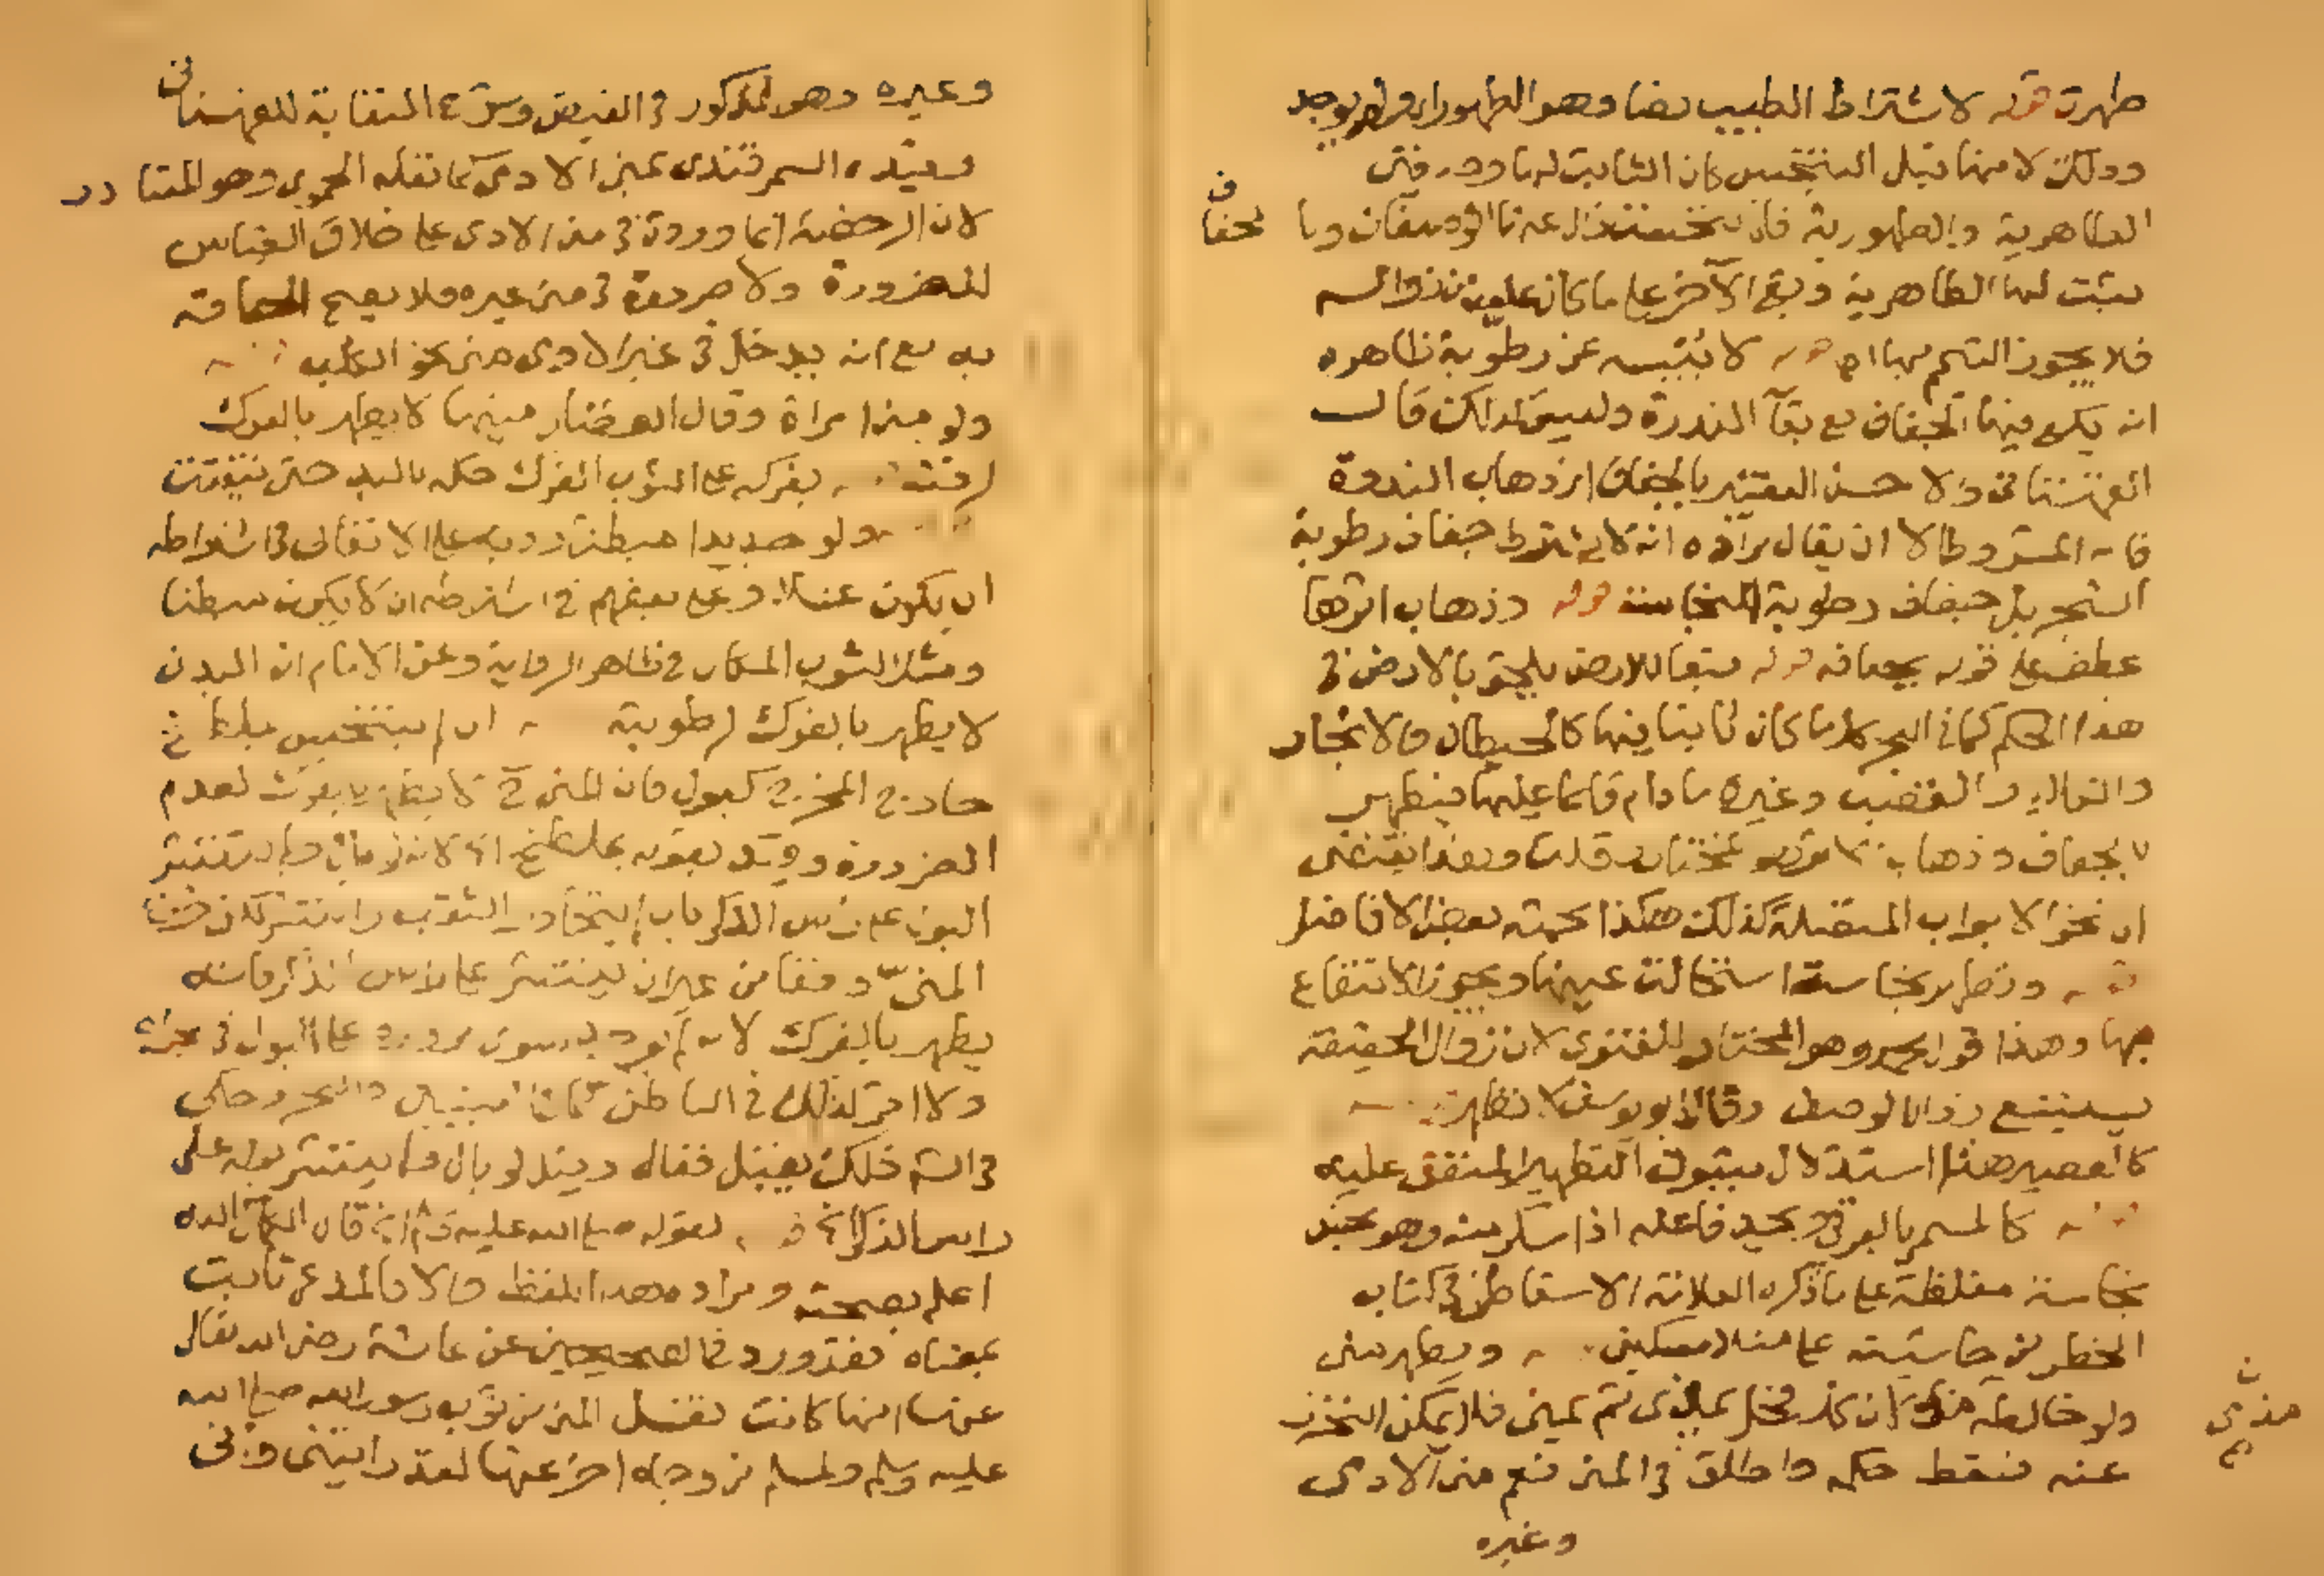 طهرت قوله لاشتراط الطيب نصا وهو الطهور ولم يوجد
وذلك لانها قبل التنجس كان الثابت لها وصفين
الطاهرية والطهورية فاذا تنجست زال عنها الوصفان وبا
لجفاف
يثبت لها الطاهرية وبقي الآخر على ما كان عليه من زواله
فلا يجوز التيمم بها اه قوله لا يبسه عن رطوبة ظاهره
انه يكفي فيها الجفاف مع بقاء الندوة وليس كذلك قال
القهستاني والاحسن التعبير بالجفاف اي ذهاب الندوة
فانه المشروط الا ان يقال مراده انه لا يشترط جفاف رطوبة
الشجر بل جفاف رطوبة النجاسة قوله وذهاب اثرها
عطف على قوله بجفافه قوله تبعا للارض يلحق بالارض في
هذا الحكم كما في البحر كل ما كان ثابتا فيها كالحيطان والاشجار
والكلا والقصب وغيره ما دام قائما عليها فيطهر
بالجفاف وذهاب هو المختار قلت وهذا يقتضي
ان نحو الابواب المتصلة كذلك هكذا بحثه بعض الافاضل
قوله وتطهر نجاسة استحالت عينها ويجوز الانتفاع
بها وهذا قول محمد وهو المختار للفتوى لان زوال الحقيقة
يستتبع زوال الوصف وقال ابو يوسف لا تطهر
كالعصير هذا استدلال بثبوت التطهير المتفق عليه
نجاسة مغلظة على ما ذكره العلامة الاسقاطي في كتابه
الخطر من حاشيته على منلا مسكين قوله ويطهر مني
ولو خالطه مذي لان كل فحل يمذي ثم يمني فلا يمكن التحرز
مذي
عنه فسقط حكمه واطلق في المني فعم مني الادمي
وغيره
وغيره وهو المذكور في الفيض وشرح النقاية للقهستاني
وقيده السمرقندي بمني الادمي كما نقله الحموي وهو المتبادر
لان الرخصة انما وردت في مني الادمي على خلاف القياس
للضرورة ولا ضرورة في مني غيره فلا يصح الحاقه
به مع انه يدخل في غير الادمي مني نحو الكلب
ولو مني امراة وقال الفضلي منيها لا يطهر بالفرك
لرقته قوله بفركه على الثوب الفرك حكه باليد حتى يتفتت
ولو جديدا مبطنا رد به على الاتقاني في اشتراطه
ان يكون غسيلا وعلى بعضهم في اشتراطه ان لا يكون مبطنا
ومثل الثوب المكان في ظاهر الرواية وعن الامام ان البدن
لا يطهر بالفرك لرطوبته قوله ان لم يتنجس بملطخ
خارج المخرج كبول فان المني لا يطهر بالفرك لعدم
الضرورة وقيد بقوله بملطخ لانه لو بال ولم ينتشر
البول على راس الذكر بان لم يتجاوز الثقب او انتشر لكن خرج
المني دفقا من غير ان ينتشر على راس الذكر فانه
يطهر بالفرك لانه لم يوجد سوى مروره على البول في مجراه
ولا اثر لذلك في الباطن كما في التبيين والبحر وحكى
في النهر ذلك بقيل فقال وقيل لو بال ولم ينتشر بوله على
راس الذكر الخ قوله لقوله صلى الله عليه وسلم الخ قال الكمال الله
اعلم بصحته ومراده بهذا اللفظ والا فالمدعى ثابت
بمعناه فقد ورد في الصحيحين عن عائشة رضي الله تعالى
عنها انها كانت تغسل المني من ثوب رسول الله صلى الله
عليه وسلم ولمسلم من وجه اخر عنها لقد رايتني واني